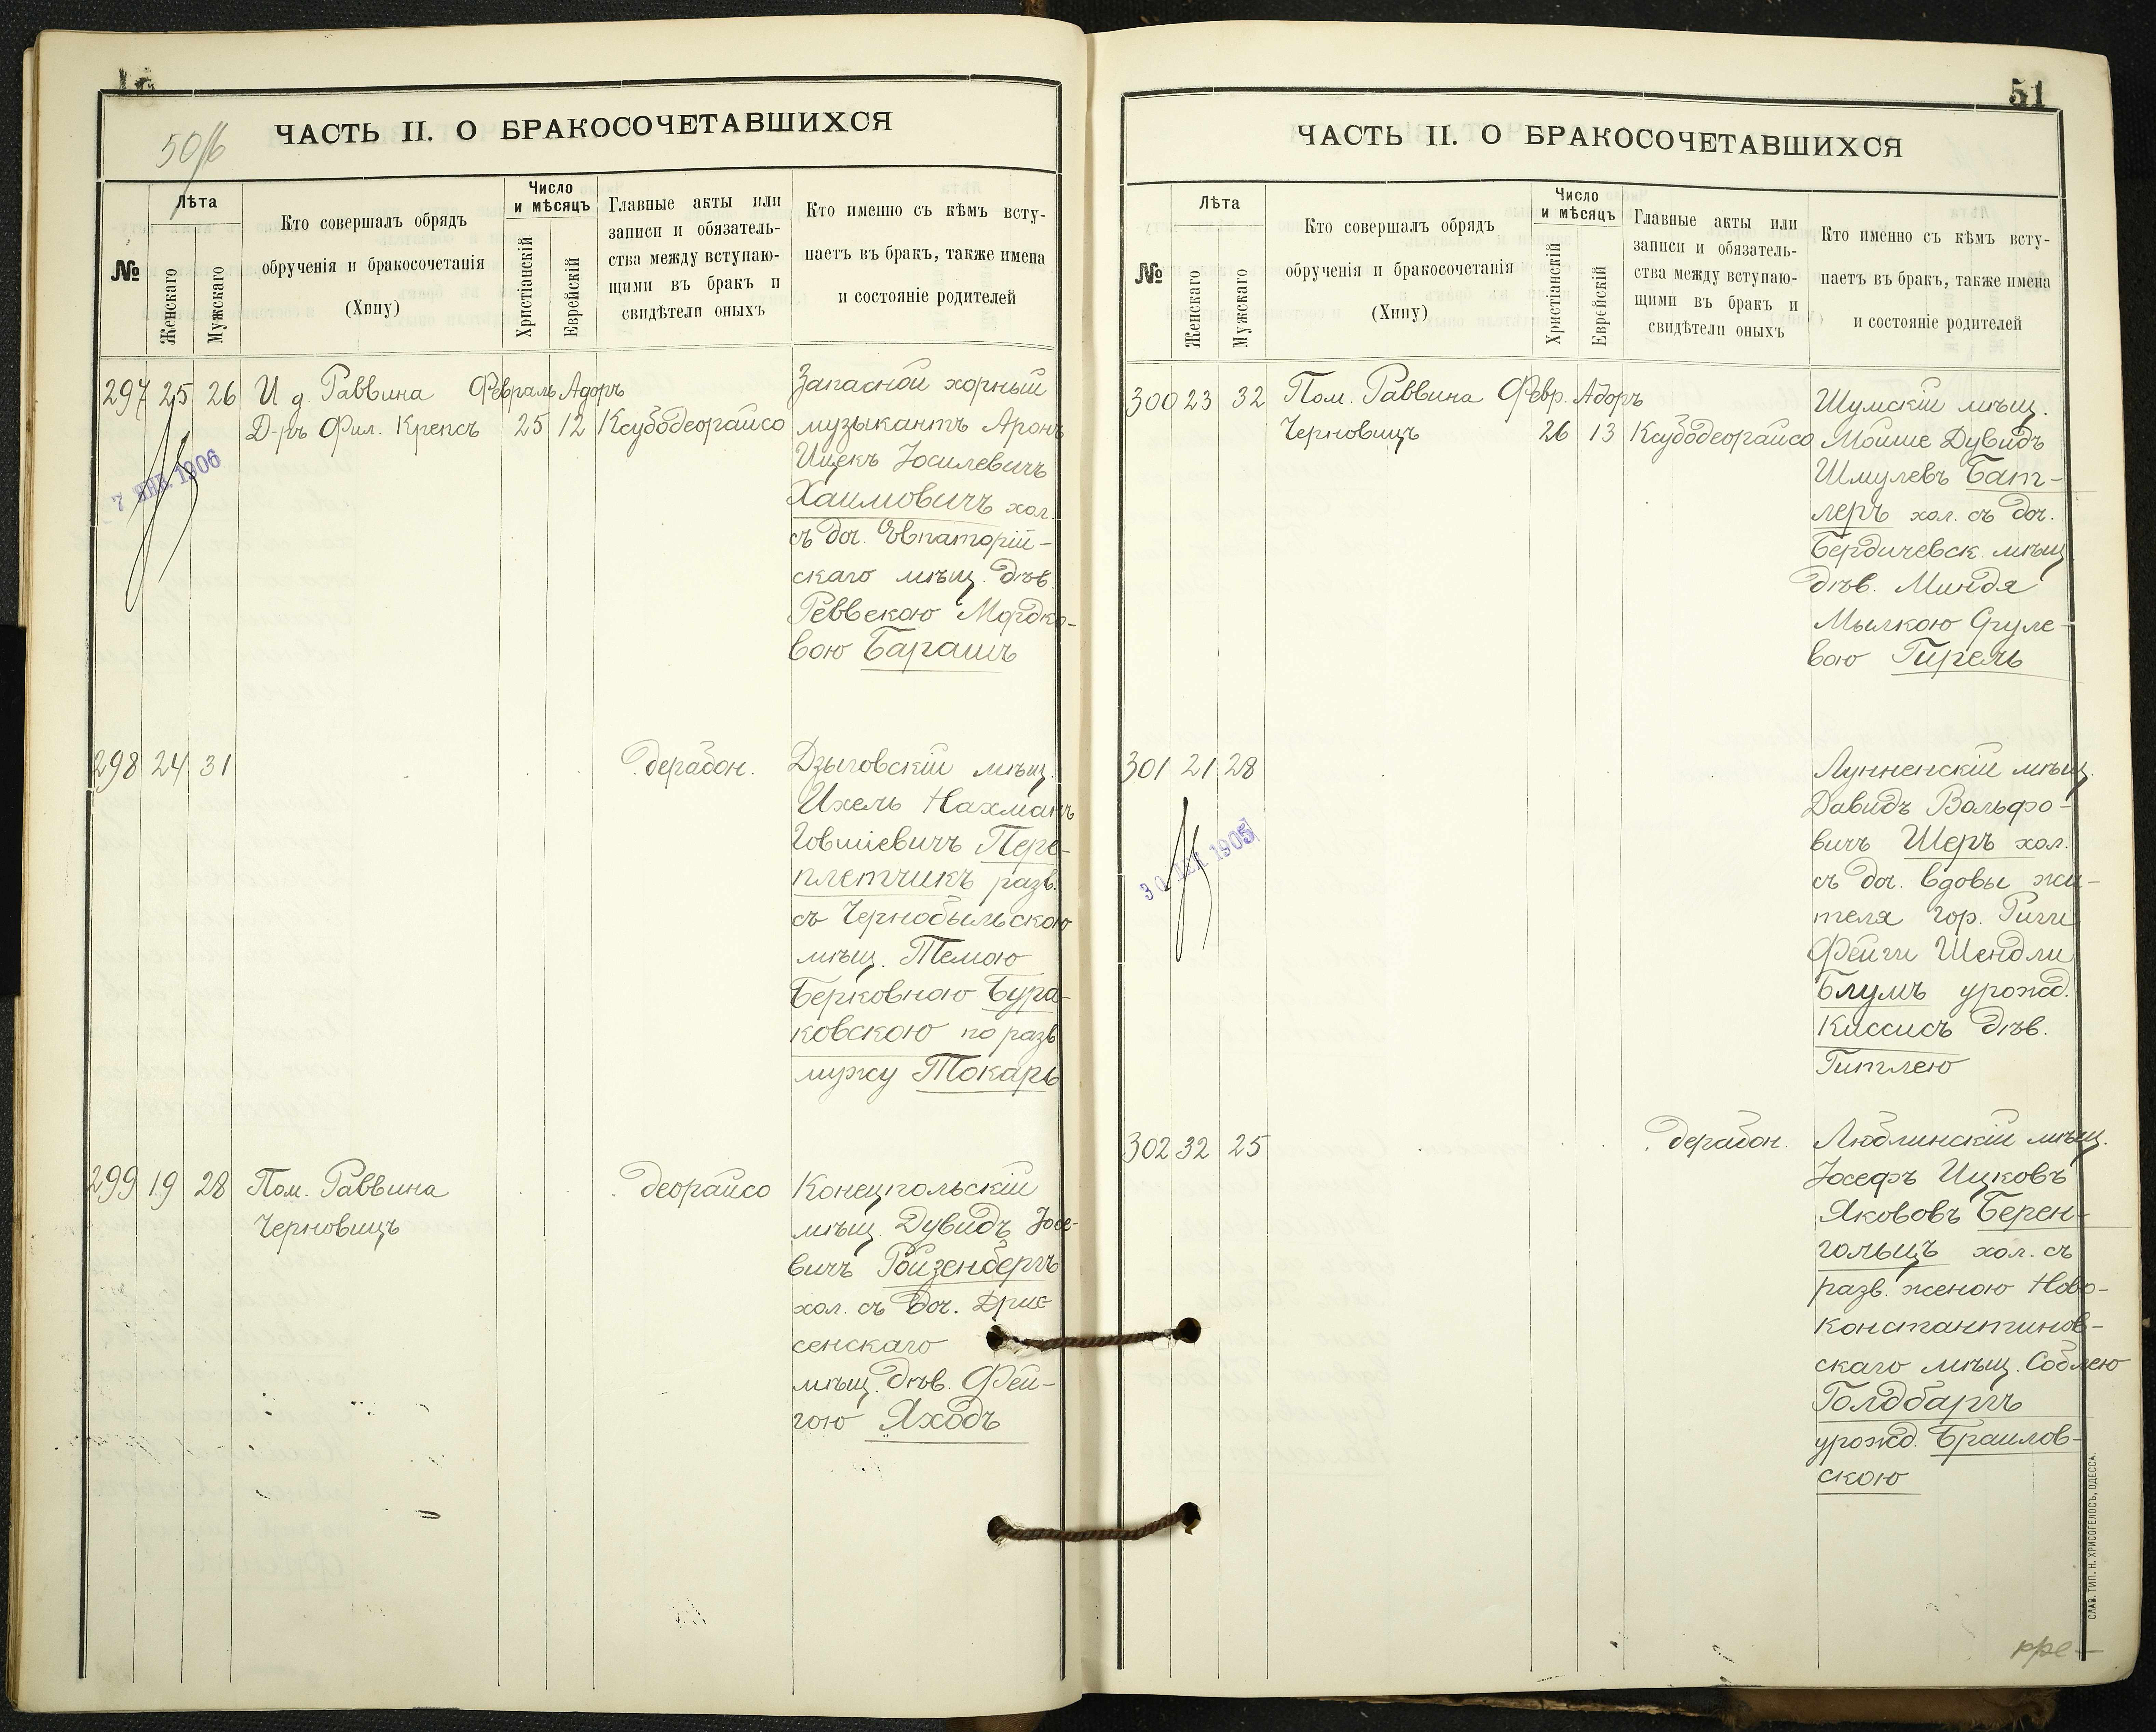 50/б
ЧАСТЬ II. О БРАКОСОЧЕТАВШИХСЯ
№
Лѣта
Женскаго
Мужскаго
Кто совершалъ обрядъ
обрученія и бракосочетанія
(Хипу)
Число
и мѣсяцъ
Христіанскій
Еврейскій
Главные акты или
записи и обязатель-
ства между вступаю-
щими въ бракъ и
свидѣтели оныхъ
Кто именно съ кѣмъ всту-
паетъ въ бракъ, также имена
и состояніе родителей
297 25 26 И д. Раввина Февраль Адоръ Запасной хорный
Д-ръ Фил. Крепсъ 25 12 Ксубодеорайсо музыкантъ Аронъ
7 ЯНВ. 1906
Ицекъ Іосилевичъ
Хаимовичъ хол.
съ доч. Евпаторій-
скаго мѣщ. дѣв.
Реввекою Мордко-
вою Барашъ
298 24 31 дерабон. Дзыговскій мѣщ.
Ихель Нахманъ
Товміевичъ Пере-
плетчикъ разв.
съ Чернобыльскою
мѣщ. Темою
Берковною Бура-
ковскою по разв
мужу Токарь
299 19 28 Пом. Раввина деорайсо Конецпольскій
Черновицъ мѣщ. Дувидъ Іосе-
вичъ Ройзенбергъ
хол. съ доч. Дрис-
сенскаго
мѣщ. дѣв. Фей-
гою Яходъ
51
ЧАСТЬ II. О БРАКОСОЧЕТАВШИХСЯ
№
Лѣта
Женскаго
Мужскаго
Кто совершалъ обрядъ
обрученія и бракосочетанія
(Хипу)
Число
и мѣсяцъ
Христіанскій
Еврейскій
Главные акты или
записи и обязатель-
ства между вступаю-
щими въ бракъ и
свидѣтели оныхъ
Кто именно съ кѣмъ всту-
паетъ въ бракъ, также имена
и состояніе родителей
300 23 32 Пом. Раввина Февр. Адоръ Шумскій мѣщ.
Черновицъ 26 13 Ксубодеорайсо Мойше Дувидъ
Шмулевъ Бат-
леръ хол. съ доч.
Бердичевск. мѣщ
дѣв. Миндя
Мылкою Сруле-
вою Гирель
301 21 28 Лунненскій мѣщ.
Давидъ Вольфо-
вичъ Шеръ хол.
30 1905
съ доч. вдовы жи-
теля гор. Риги
Фейги Шендли
Блумъ урожд.
Киссисъ дѣв.
Гитлею
302 32 25 дерабон. Люблинскій мѣщ.
Іосефъ Ицковъ
Яковоъ Берен-
гольцъ хол. съ
разв. женою Ново-
константинов-
скаго мѣщ. Соблею
Голдбаргъ
урожд. Браилов-
скою
СЛАВ. ТИП. Н. ХРИСОГЕЛОСЪ, ОДЕССА.